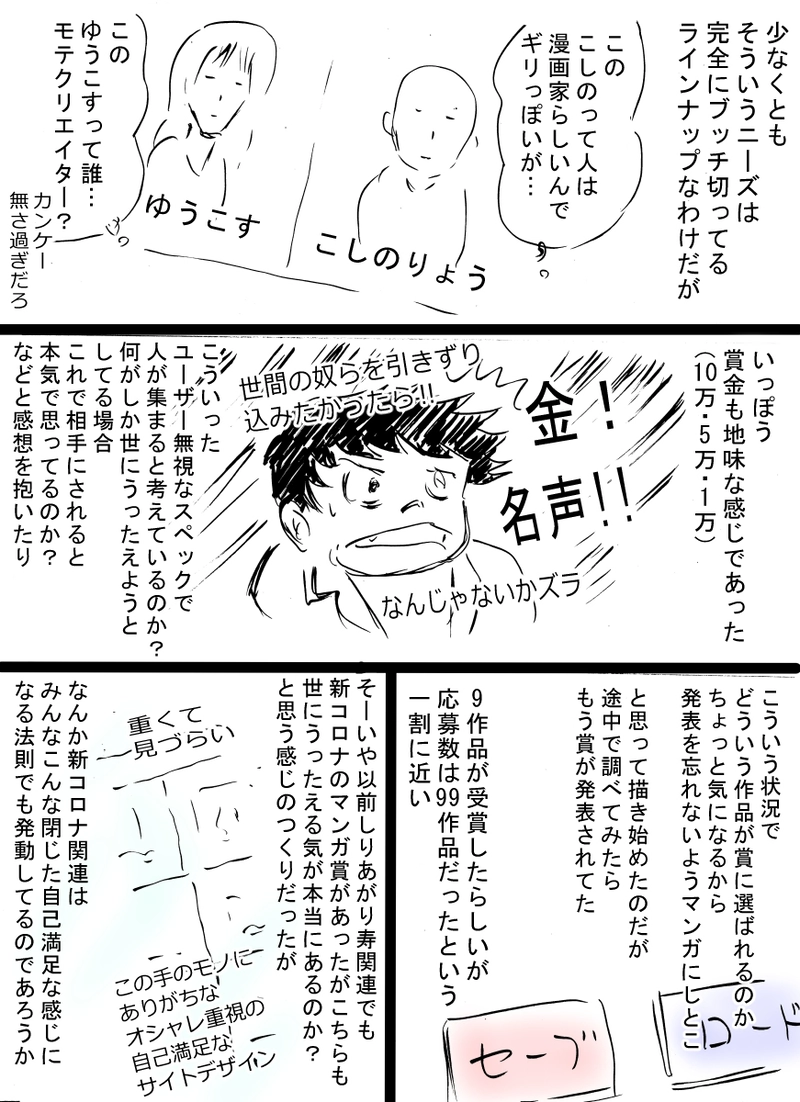 少なくとも
そういうニーズは
完全にブッチ切ってる
ラインナップなわけだが
この
こしのって人は
漫画家らしいんで
ギリっぽいが…
こしのりょう
ゆうこす
この
ゆうこすって誰…
モテクリエイター?
カンケー
無さ過ぎだろ
いっぽう
賞金も地味な感じであった
(10万・5万・1万)
金!
名声!!
世間の奴らを引きずり
込みたかったら!!
なんじゃないかズラ
こういった
ユーザー無視なスペックで
人が集まると考えているのか?
何がしか世にうったえようと
してる場合
これで相手にされると
本気で思ってるのか?
などと感想を抱いたり
こういう状況で
どういう作品が賞に選ばれるのか
ちょっと気になるから
発表を忘れないようマンガにしとこ
と思って描き始めたのだが
途中で調べてみたら
もう賞が発表されてた
9作品が受賞したらしいが
応募数は99作品だったという
一割に近い
ロード
セーブ
そーいや以前しりあがり寿関連でも
新コロナのマンガ賞があったがこちらも
世にうったえる気が本当にあるのか?
と思う感じのつくりだったが
重くて
見づらい
この手のモノに
ありがちな
オシャレ重視の
自己満足な
サイトデザイン
なんか新コロナ関連は
みんなこんな閉じた自己満足な感じに
なる法則でも発動してるのであろうか